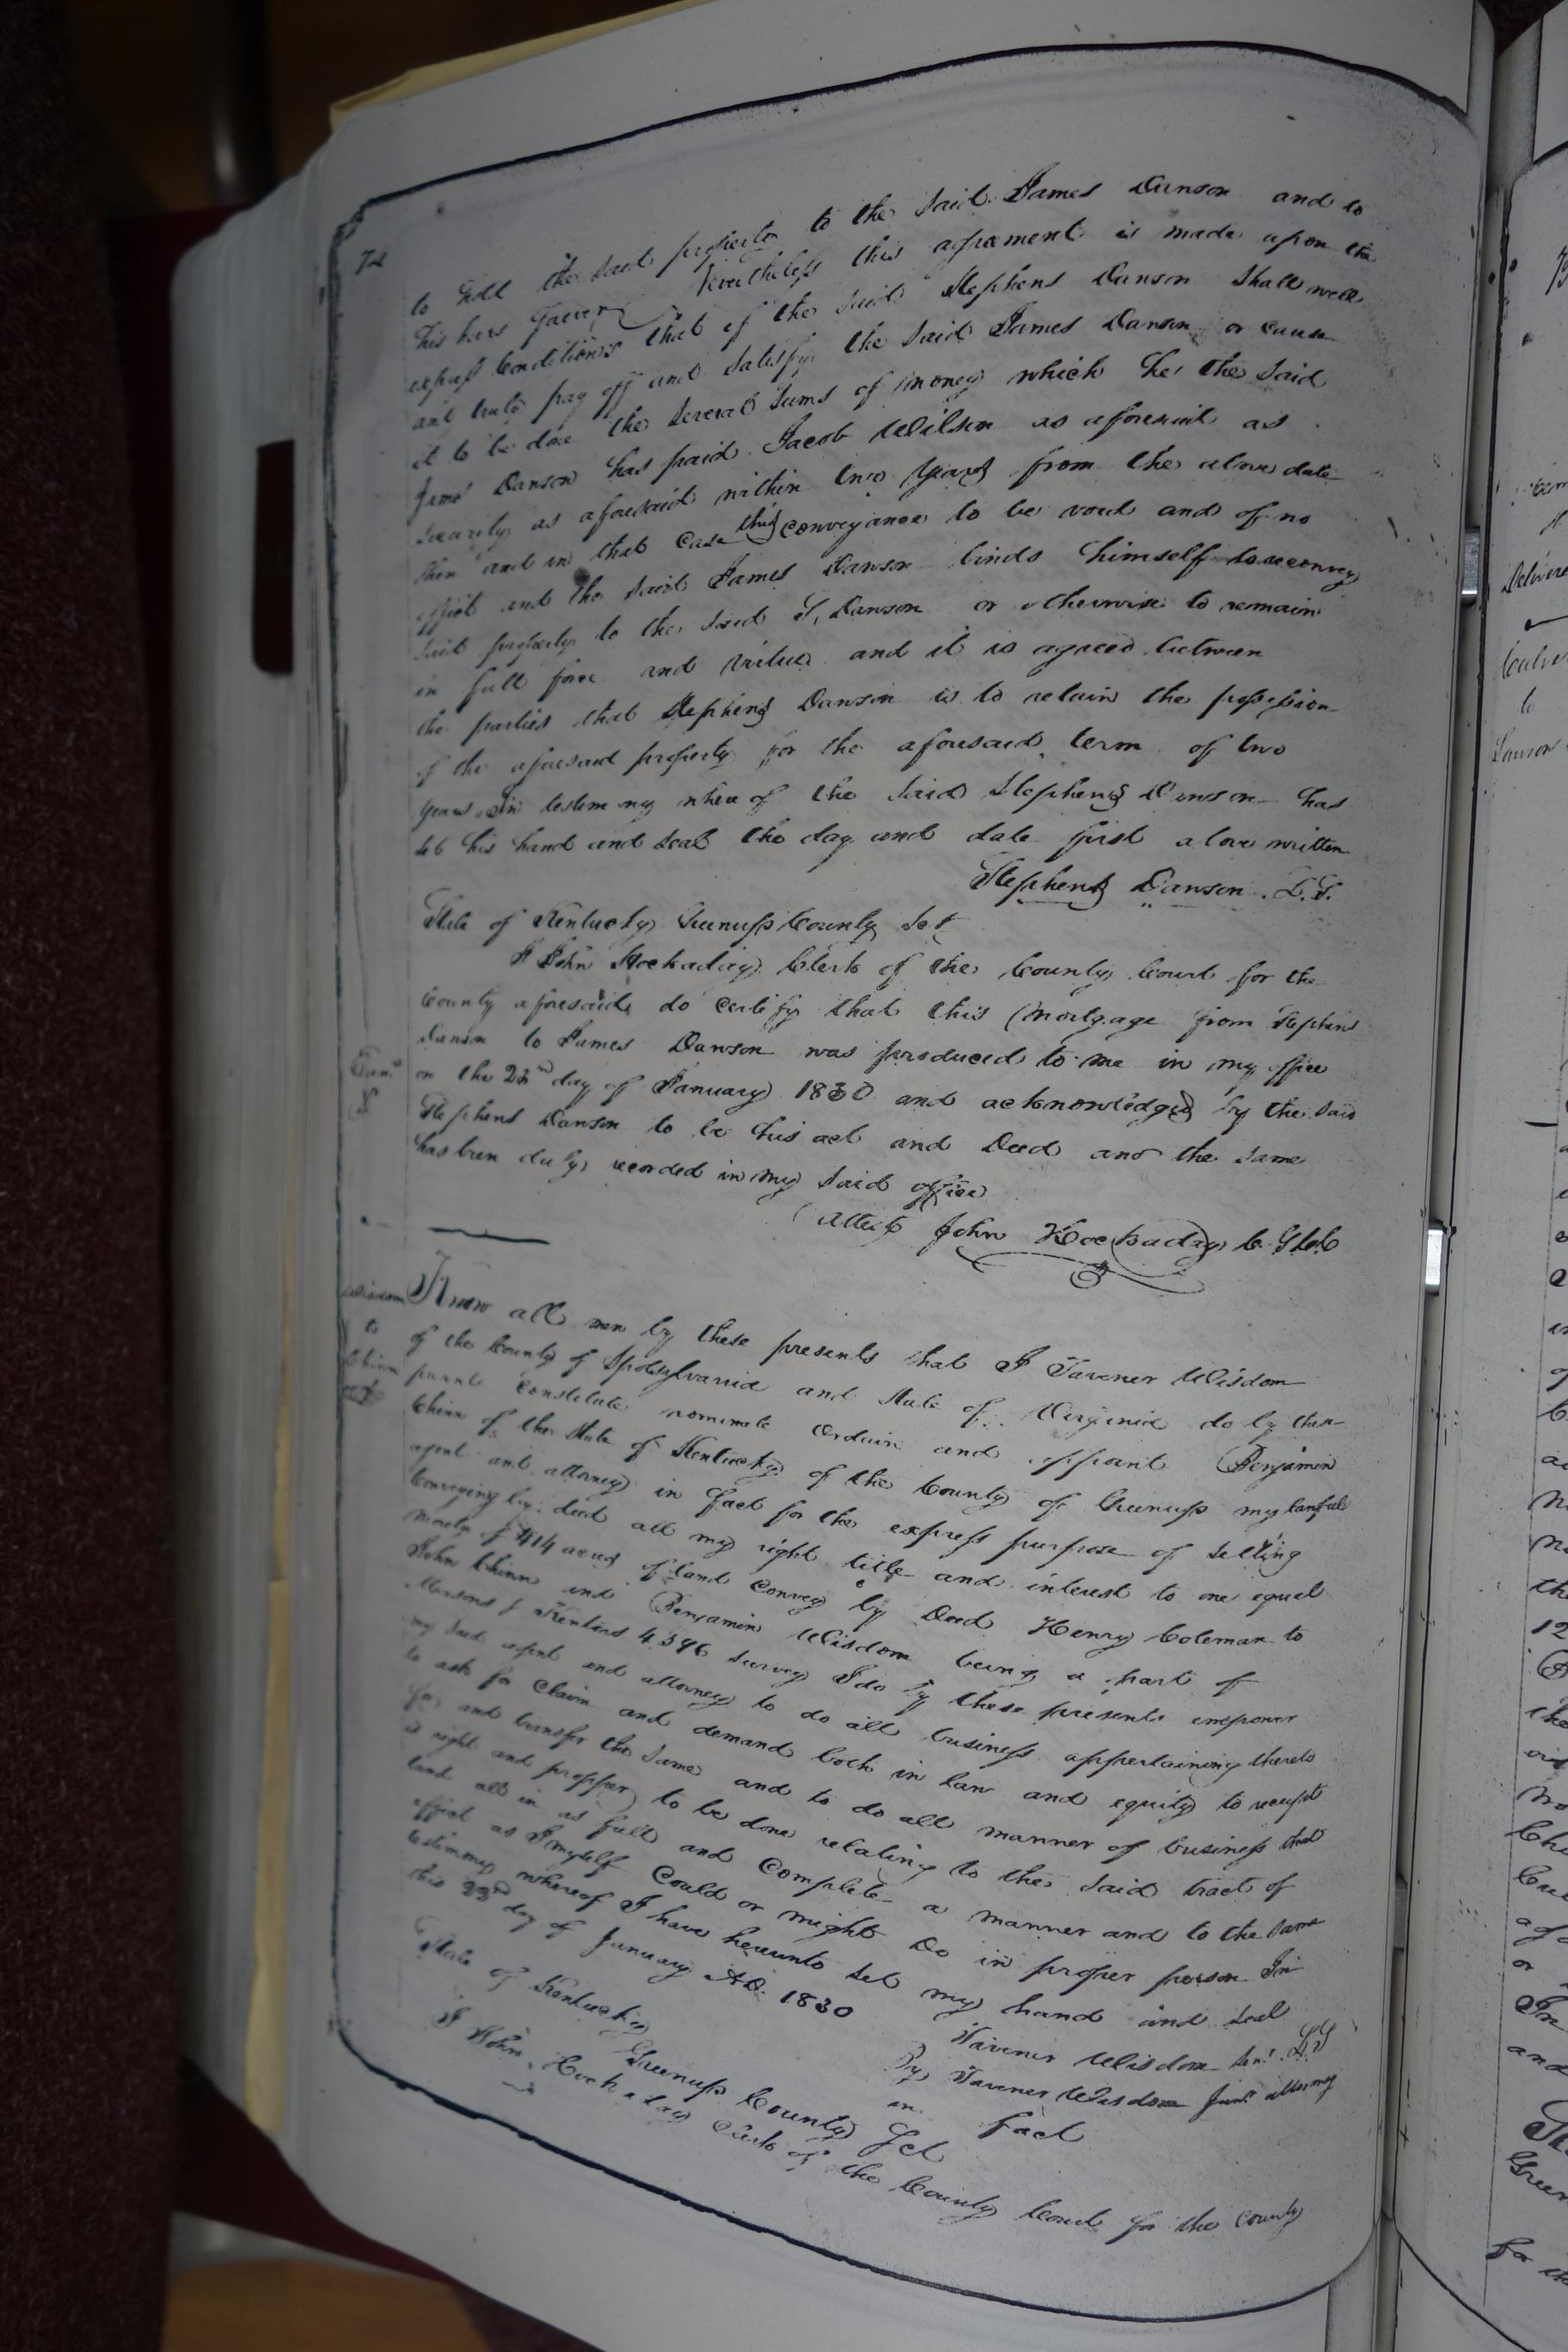 72
to hold the said property to the said James Dawson and to
his hars forever Nevertheless this agreement is made upon the
express Conditions that if the said Stephens Dawson Shall well
and truly pay off and satisfy the said James Dawson or cause
it to be done the several sums of money which he the said
Jams Dawson has paid Jacob Wilson as aforesaid as
security as aforesaid within two years from the above date
then and in that case this conveyance to be void and of no
effect and the said James Dawson binds himself to reconvey
said property to the said S, Dawson or otherwise to remain
in full force and virtue and it is agreed between
the parties that Stephens Dawson is to retain the possession
of the aforesaid property for the aforesaid term of two
years, In testimony where of the said Stephens Dawson has
set his hand and seal the day and date first above written
Stephens Dawson L.S.
State of Kentucky Greenup County Sct
I John Hockaday Clerk of the County Court for the
County aforesaid do certify that this Mortgage from Stephens
Dawson to James Dawson was produced to me in my office
on the 23rd day of January 1830 and acknowledged by the said
Stephens Dawson to be his act and Deed and the same
has been duly recorded in my said office
Attest John Hockaday C. G C C
Wisdom
to
Chinn
Know all men by these presents that I Tavener Wisdom
of the County of Spotsylvania and State of Virginia do by these
presents constitute nominate ordain and appoint Benjamin
Chinn of the State of Kentucky of the County of Greenup my lawful
agent and attorney in fact for the express purpose of selling
Conveying by deed all my right title and interest to one equal
moiety of 414 acres of land convey by Deed Henry Coleman to
John Chinn and Benjamin Wisdom being a part of
4396 survey I do by these presents empower
my said agent and attorney to do all business appertaining thereto
to ask for claim and demand both in law and equity to receipt
for and transfer the same and to do all manner of business that
is right and propper to be done relating to the said tract of
land all in as full and complete a manner and to the same
effect as I myself could or might do in proper person In
testimony whereof I have hereunto set my hand and seal
this 22nd day of January A.D. 1830
Tavener Wisdom Senr. LS
By Tavener Wisdom Junr attorney
in fact
State of Kentucky Greenup County Sct
I John Hockaday Clerk of the County Court for the County